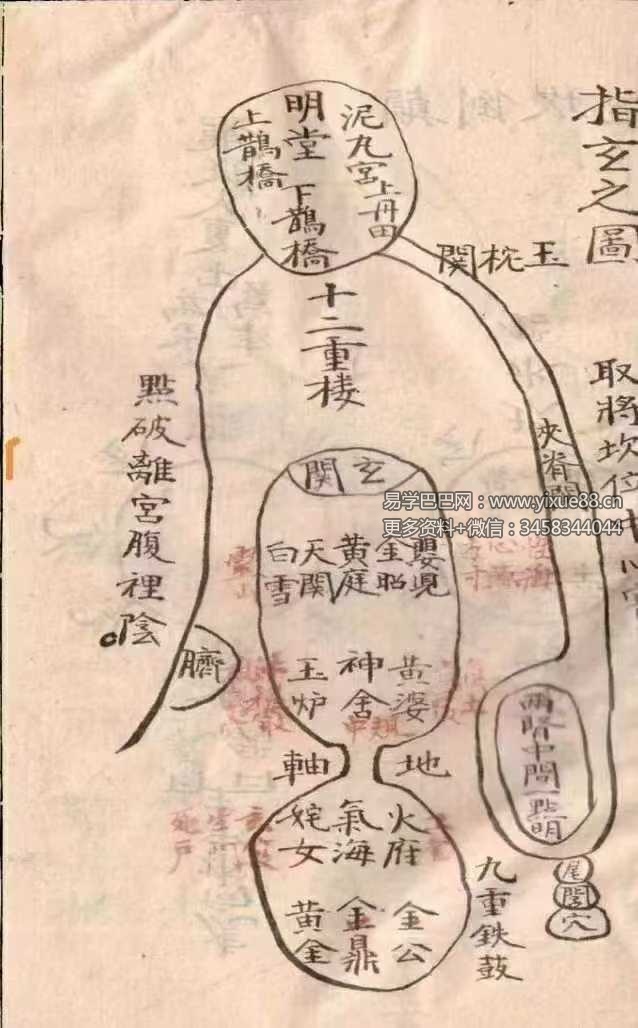 指玄之圖
取將坎位中心實
泥丸宮上丹田
明堂
下鵲橋
上鵲橋
玉枕関
十二重楼
夾脊関
點破離宮腹裡陰
玄関
嬰児
金昭
黄庭
天関
白雪
黄婆
神舍
玉炉
臍
地軸
火府
氣海
姹女
金公
金鼎
黄金
兩腎中間一點明
尾閭穴
九重鉄鼓
易学巴巴网:www.yixue88.cn
更多资料+微信:3458344044